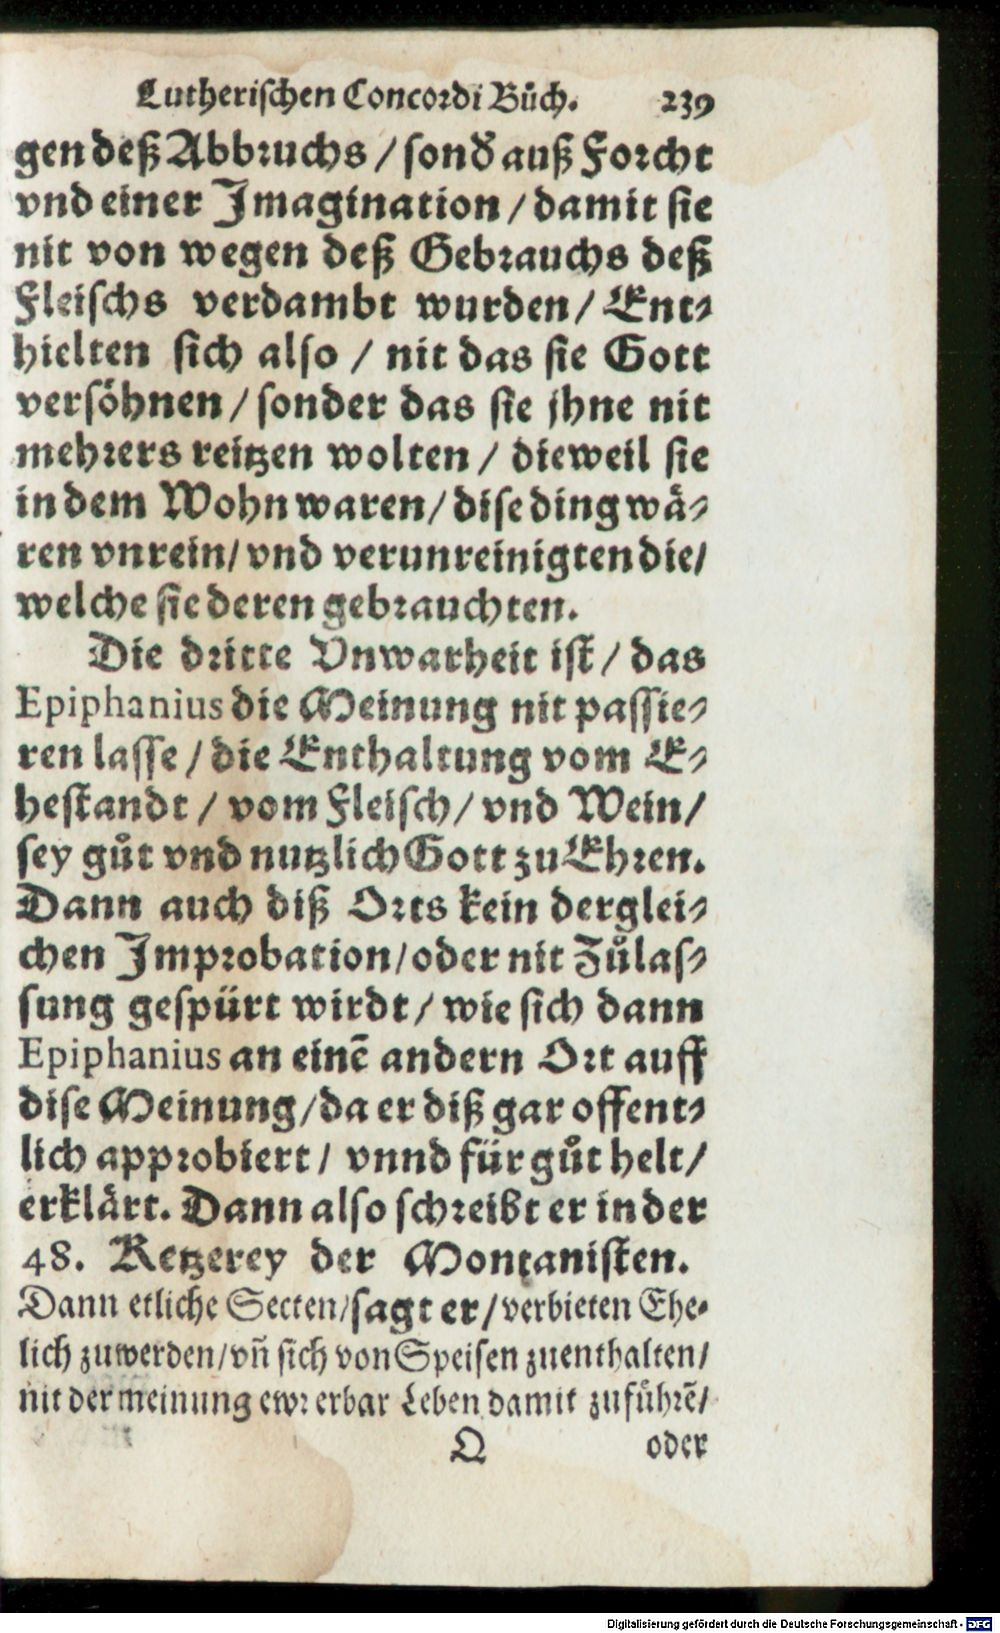 Lutherischen Concordi Bůch. 239
gen deß Abbruchs / sond̕ auß Forcht
vnd einer Imagination / damit sie
nit von wegen deß Gebrauchs deß
Fleischs verdambt wurden / Ent⸗
hielten sich also / nit das sie Gott
versöhnen / sonder das sie jhne nit
mehrers reitzen wolten / dieweil sie
in dem Wohn waren / dise ding wä⸗
ren vnrein / vnd verunreinigten die /
welche sie deren gebrauchten.
Die dritte Vnwarheit ist / das
Epiphanius die Meinung nit passie⸗
ren lasse / die Enthaltung vom E⸗
hestandt / vom Fleisch / vnd Wein /
sey gůt vnd nutzlich Gott zu Ehren.
Dann auch diß Orts kein derglei⸗
chen Improbation / oder nit Zůlas⸗
sung gespürt wirdt / wie sich dann
Epiphanius an einē andern Ort auff
dise Meinung / da er diß gar offent⸗
lich approbiert / vnnd für gůt helt /
erklärt. Dann also schreibt er in der
48. Ketzerey der Montanisten.
Dann etliche Secten / sagt er / verbieten Ehe⸗
lich zuwerden / vñ sich von Speisen zuenthalten /
nit der meinung ewr erbar Leben damit zuführē /
Q oder
Digitalisierung gefördert durch die Deutsche Forschungsgemeinschaft - DFG